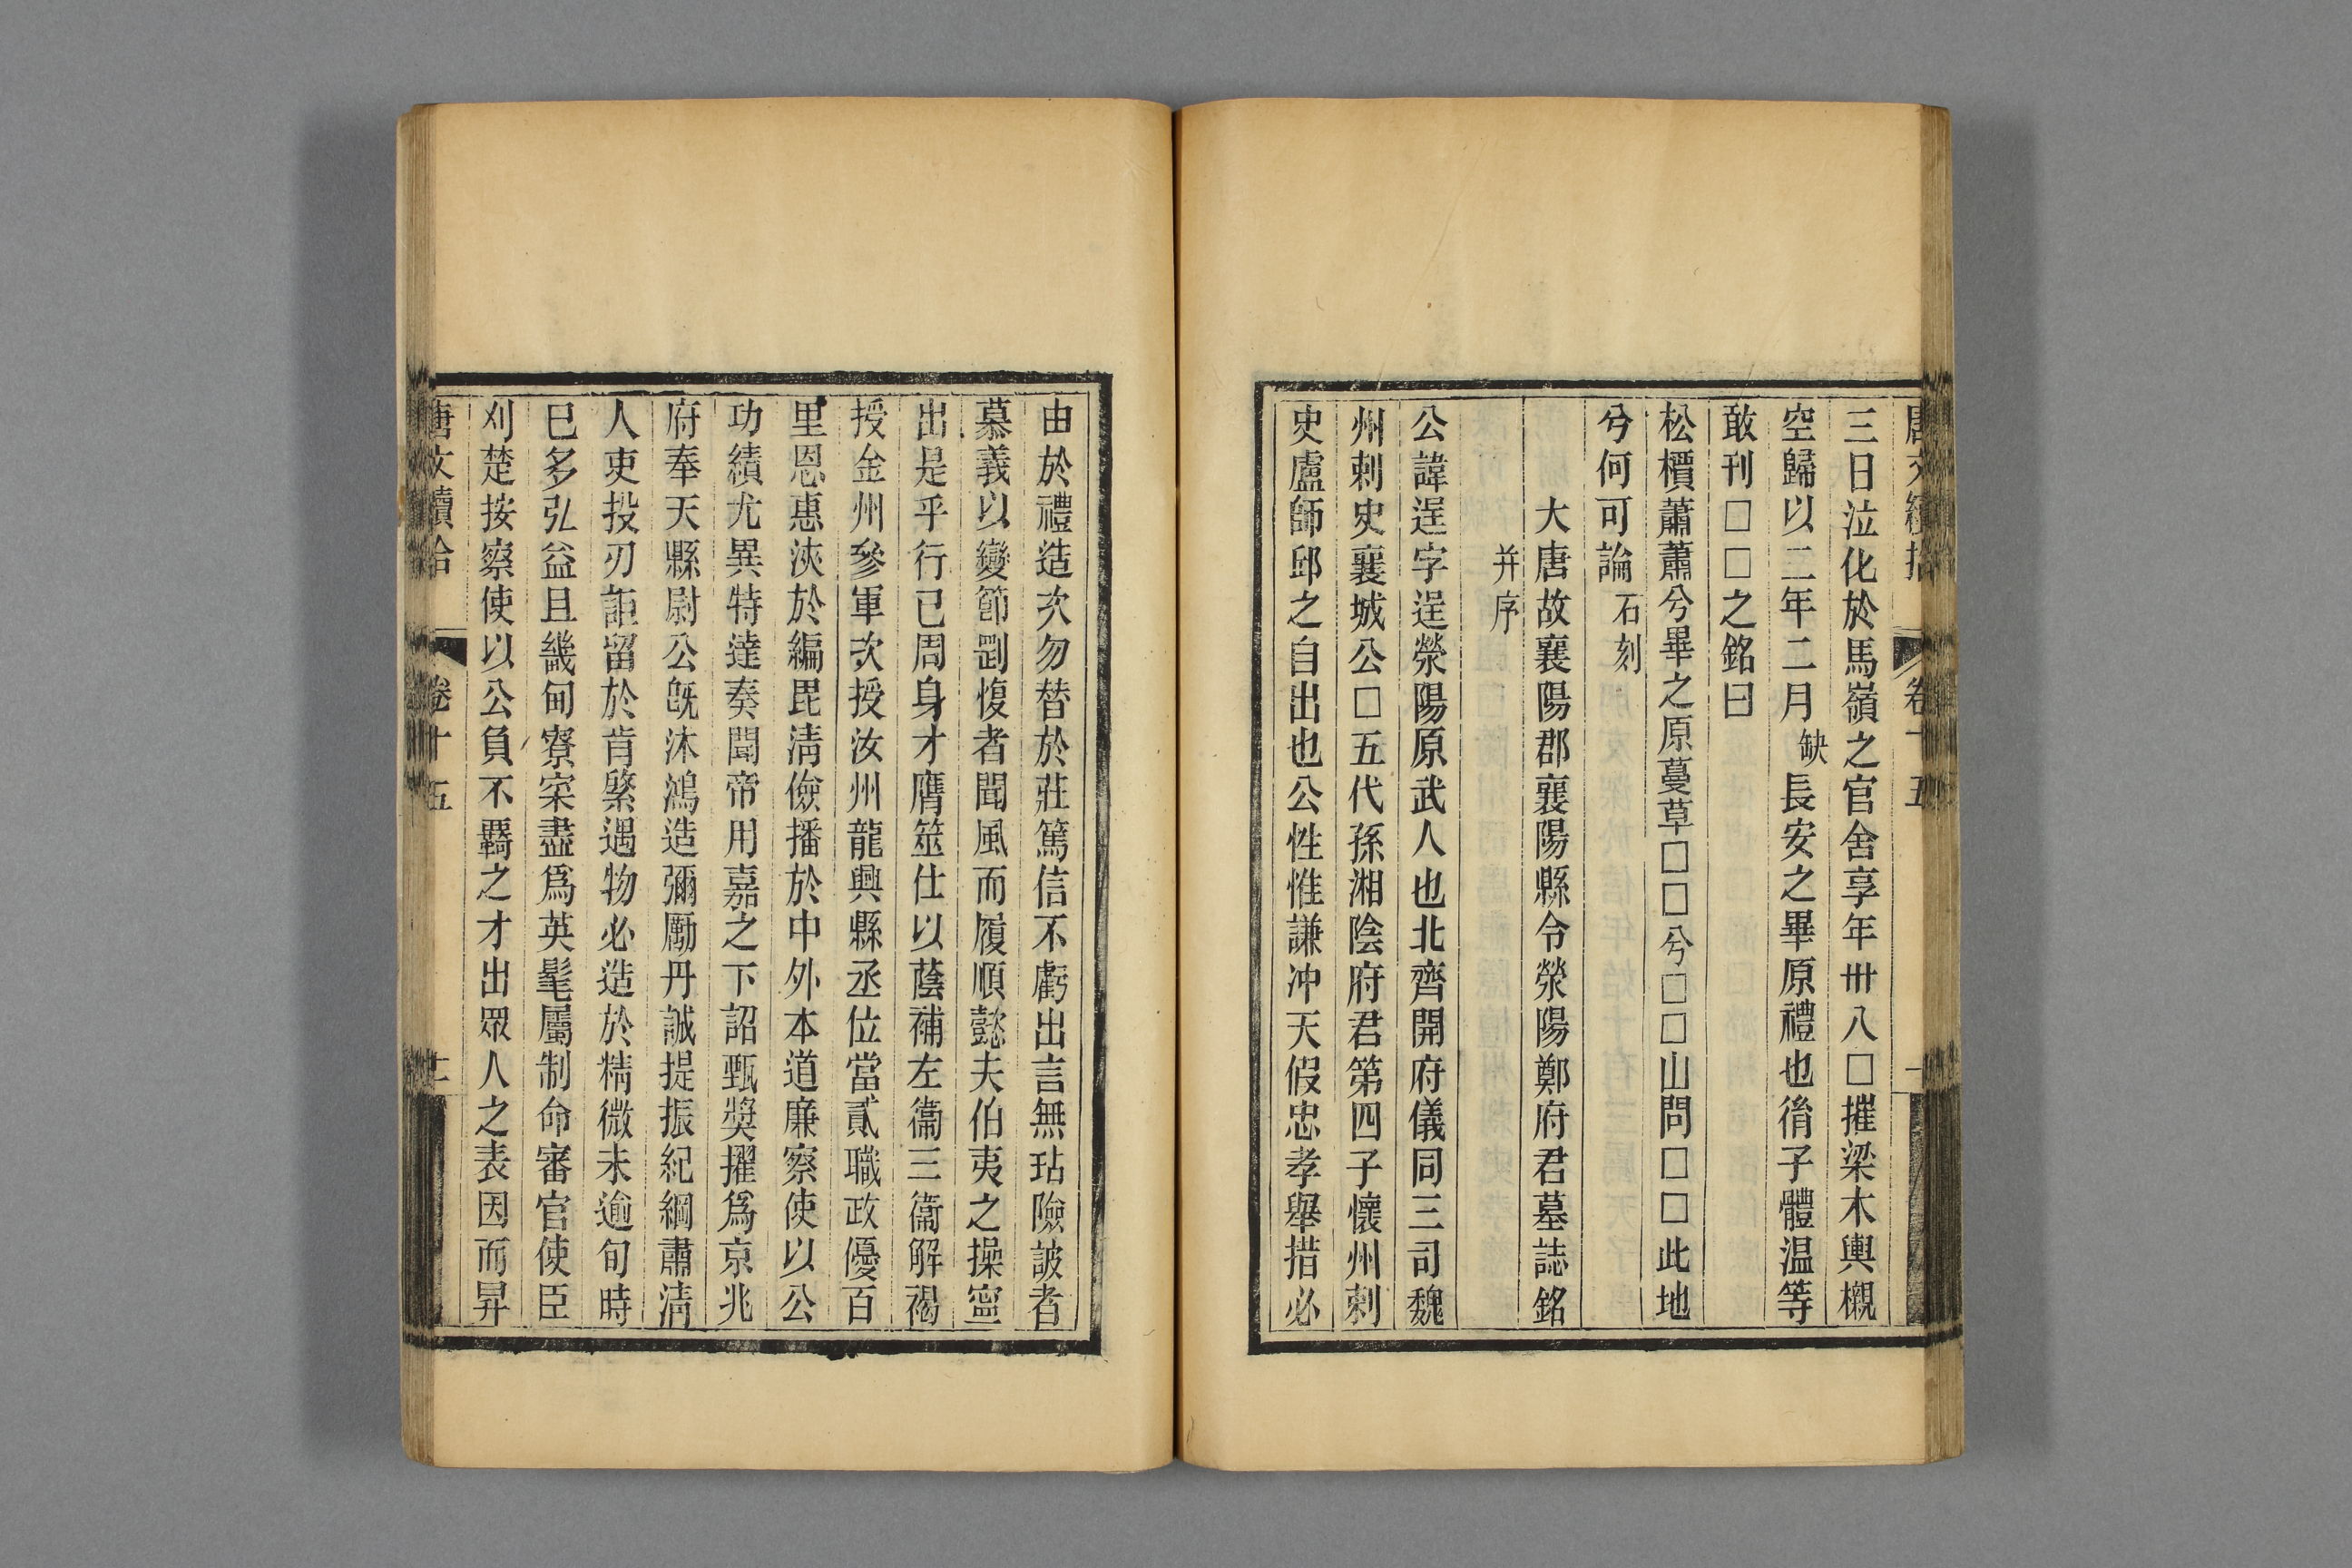 唐文續拾 卷十五
三日泣化於馬嶺之官舍享年卌八□摧梁木輿櫬
空歸以二年二月缺長安之畢原禮也胤子體温等
敢刊□□之銘曰
松檟蕭蕭兮畢之原蔓草□□兮□□山問□□此地
兮何可論石刻
大唐故襄陽郡襄陽縣令滎陽鄭府君墓誌銘
并序
公諱逞字逞滎陽原武人也北齊開府儀同三司魏
州刺史襄城公□五代孫湘陰府君第四子懷州刺
史盧師邱之自出也公性惟謙冲天假忠孝舉措必
由於禮造次勿替於莊篤信不虧出言無玷險詖者
慕義以變節剛愎者聞風而履順懿夫伯夷之操寍
出是乎行已周身才膺筮仕以蔭補左衞三衞解褐
授金州參軍次授汝州龍興縣丞位當貳職政優百
里恩惠浹於編毘淸儉播於中外本道廉察使以公
功績尤異特達奏聞帝用嘉之下詔甄奬擢爲京兆
府奉天縣尉公旣沐鴻造彌勵丹誠提振紀綱肅淸
人吏投刃詎留於肯綮遇物必造於精微未逾旬時
巳多弘益且畿甸寮寀盡爲英髦屬制命審官使臣
刈楚按察使以公負不羈之才出眾人之表因而昇
唐文續拾 卷十五